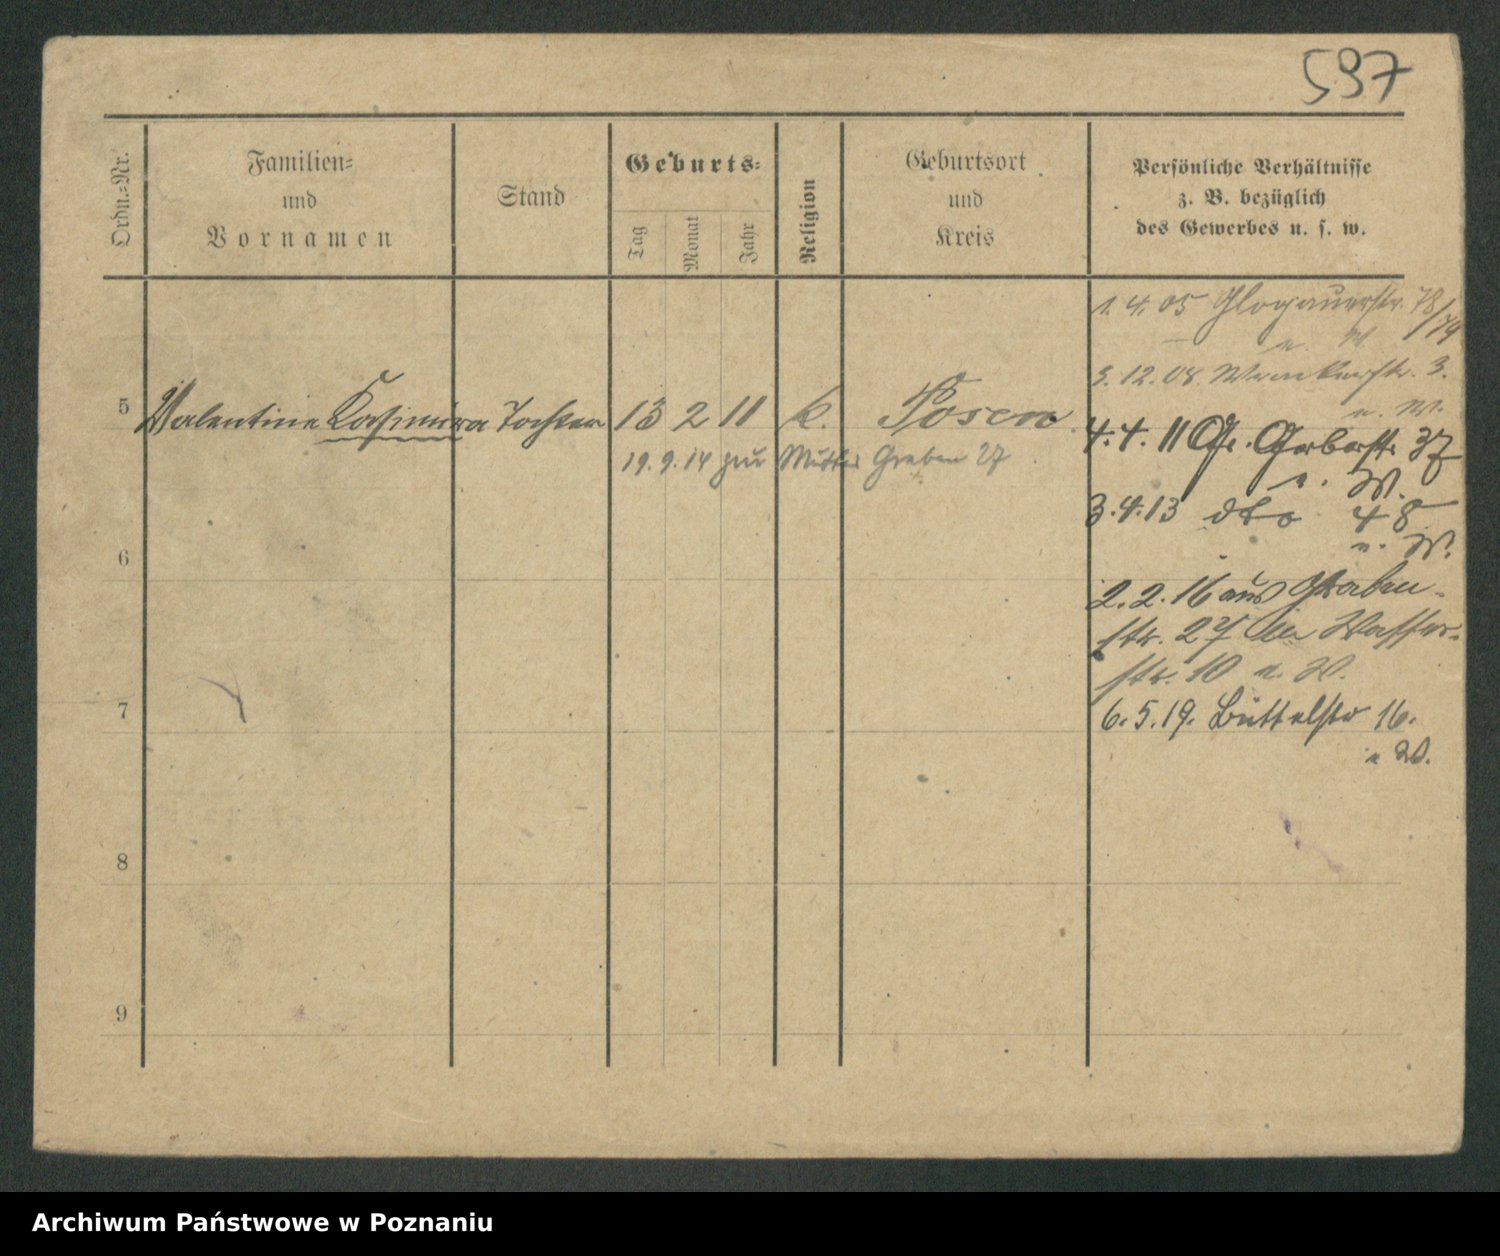 597
Ordn.=Nr.
Familien=
und
Vornamen
Stand
Geburts=
Tag
Monat
Jahr
Religion
Geburtsort
und
Kreis
Persönliche Verhältnisse
z. B. bezüglich
des Gewerbes u. s. w.
1. 4. 05 Glogauerstr. 78/79
n. W
3. 12. 08. 3.
n. W.
5 Valentine Kasimira Tochter 13 2 11 k. Posen
19. 9. 14 zur Mutter Graben 27
4. 4. 11 Gr. Gerberstr. 37
n. W.
3. 4. 13 dto 48
n. W.
6
2. 2. 16 aus Graben-
str. 27 Wasser-
str. 10 n. W.
7
6. 5. 19. Büttelstr 16.
n W.
8
9
Archiwum Państwowe w Poznaniu